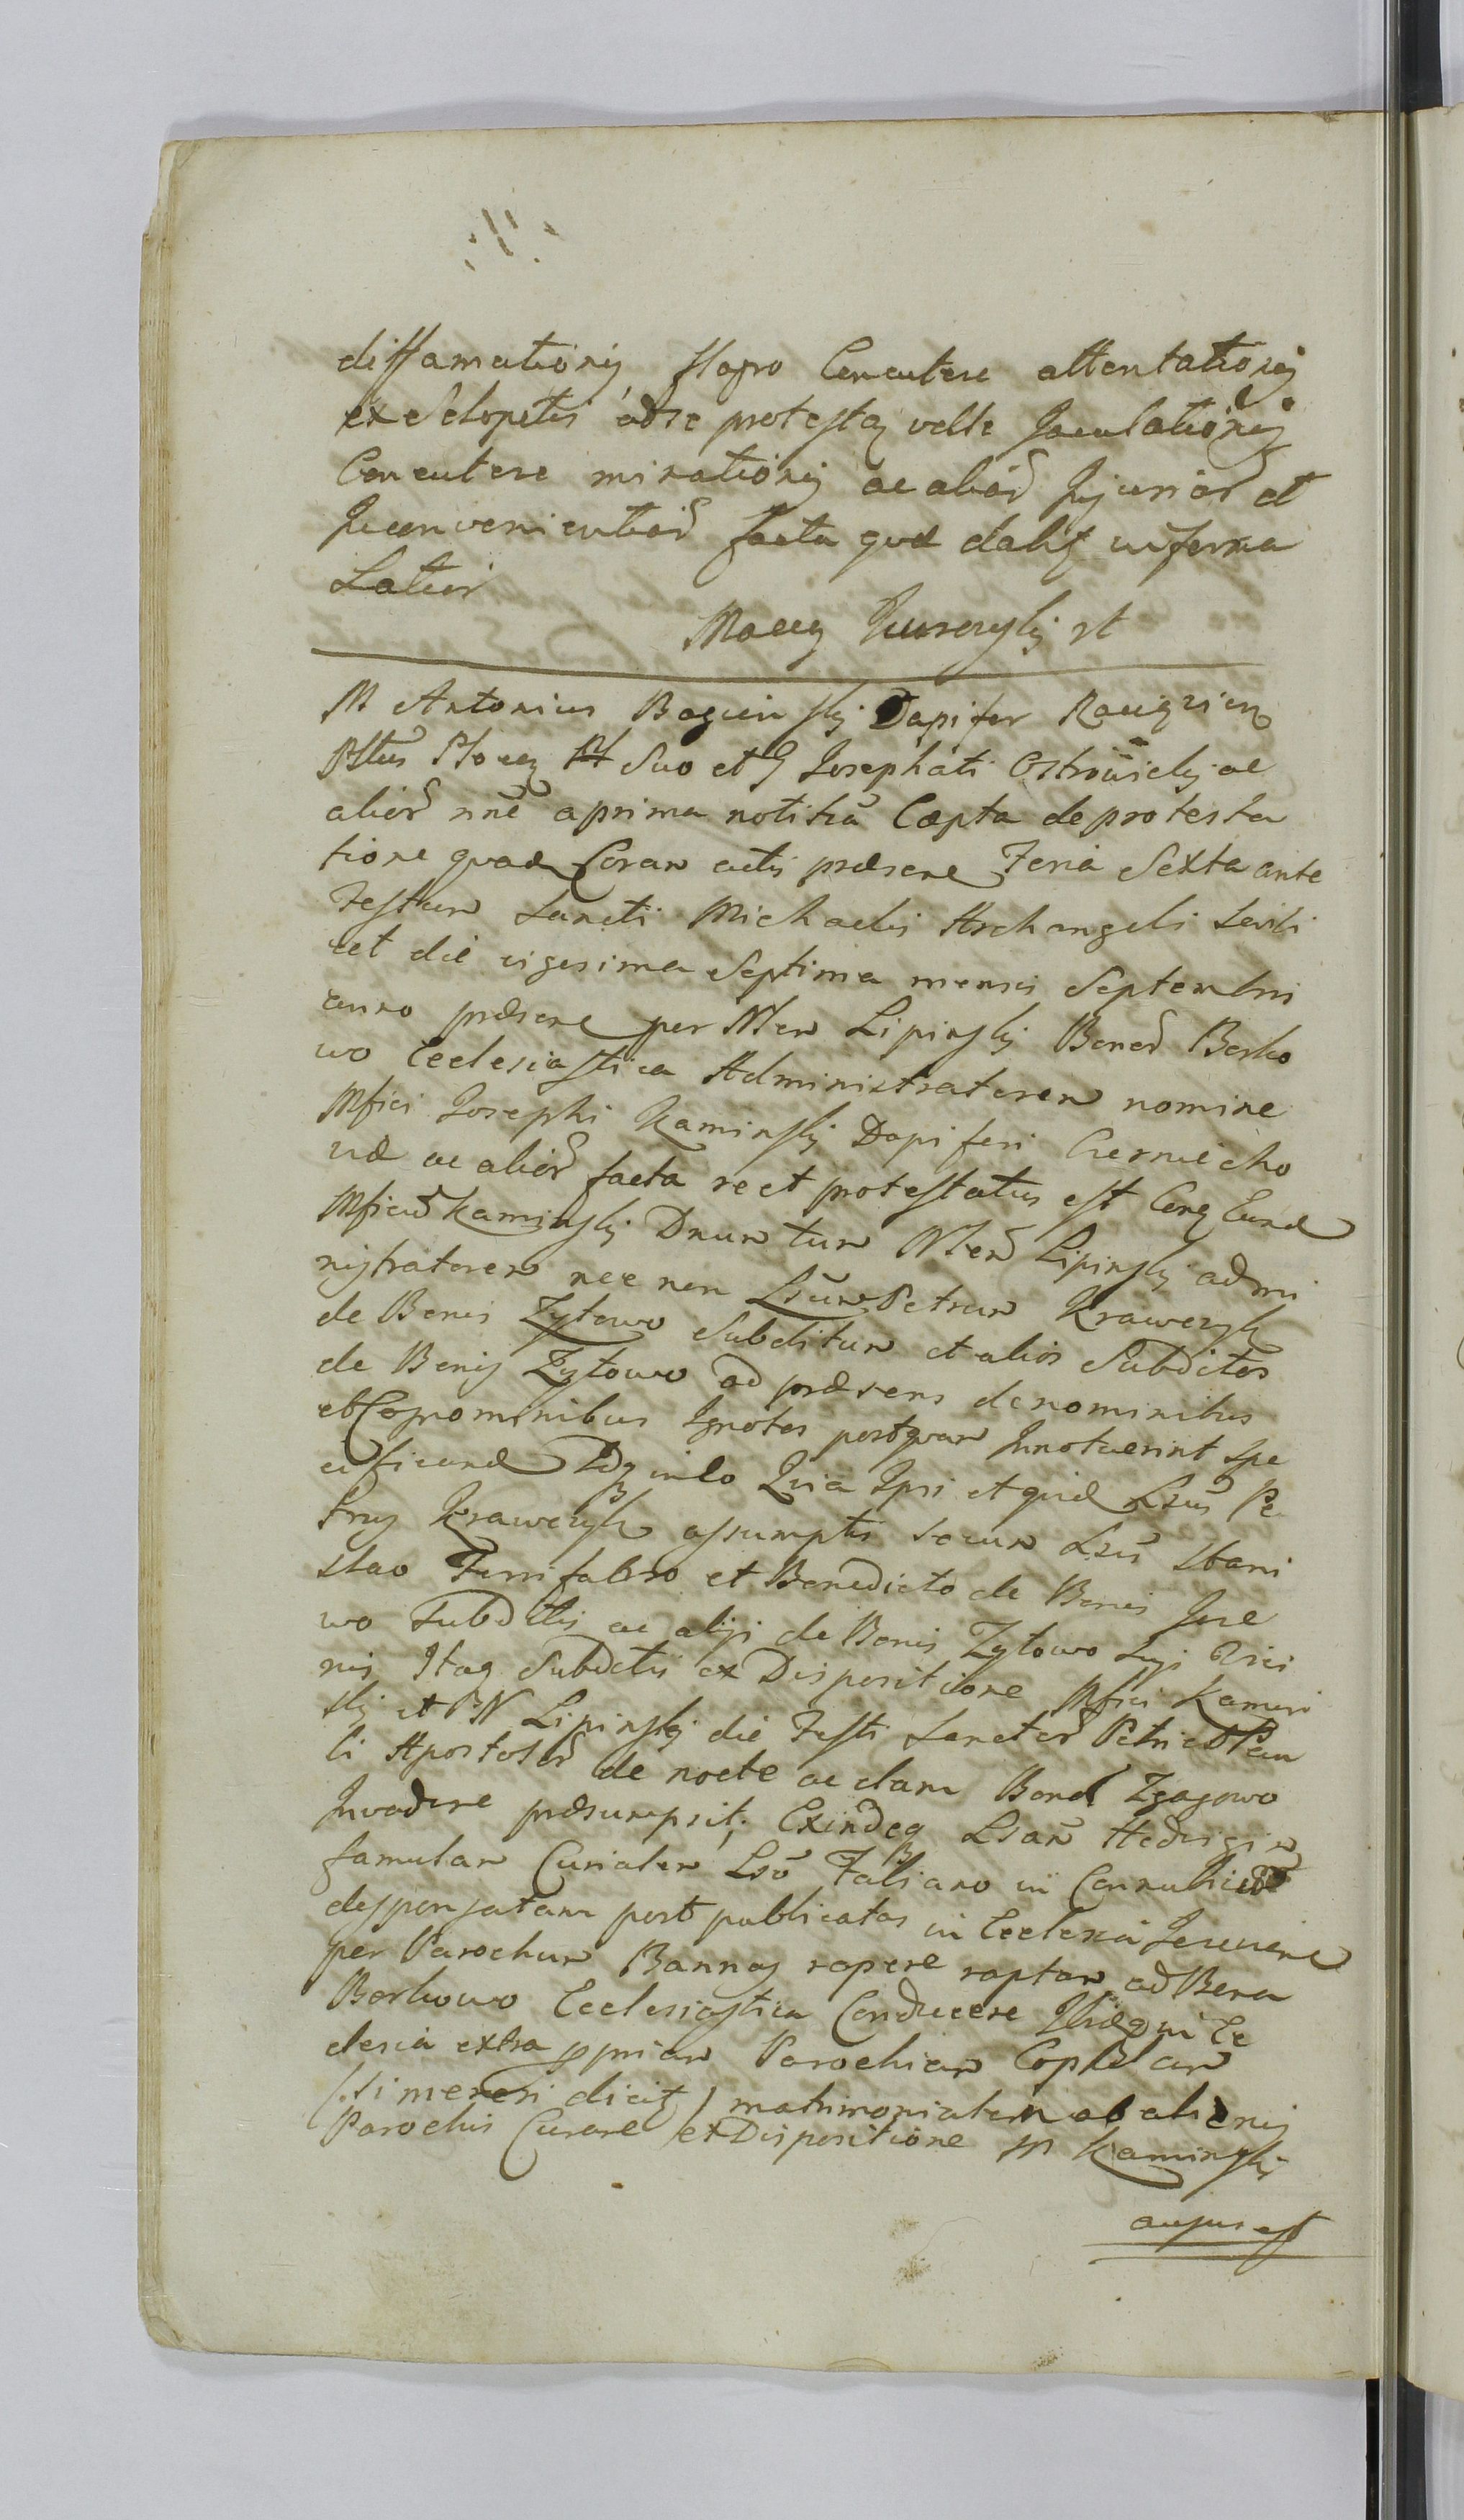 diffamationis flagro Concutere attentationis
ex Sclopetis ad se protestaň velle Jaculationis
Concutere minationis ac alior Injurior et
Inconvenientior facta quæ dabit in forma
Latior
Maciey
M Antonius Bagieński Dapifer Racigzien
Pltus Plocen Suo et G Josephati Ostrowicky ac
alior nne a prima notitia Cæpta de protesta
tione quadam Coram actis præsene Feria Sexta ante
Festum Sancti Michaelis Archangeli scili
cet die vigesima Septima mensis Septembris
anno præsene per Nlem Lipinskj Bonor Borko
wo Ecclesiastica Administratorem nomine
Mfici Josephi Kaminskj Dapiferi Czerniecho
væ ac alior facta reet protestatus est Cong Eund
Mficum Kaminskj Dnum tum Nlem Lipinskj admi
nistratorem nec non Lsum Petrum Krawczyk
de Bonis Zytowo Subditum et alios Subditos
de Bonis Zytowo ad præsens de nominibus
et Cognominibus Ignotos postquam Innotuerint spe
cificand Idq in eo Quia Ipsi et quid Lsus Pe
trus Krawczyk assumptis secum Lsis Stani
slao Ferri fabro et Benedicto de Bonis Jere
wo Subditis ac alijs de Bonis Zytowo
nis Itaq Subditis ex Dispositione Mfici Kamin
skj et N Lipinskj die Festi Sanctor Petri et Pau
li Apostolor de nocte ac clam Bona Zgagowo
Invadere præsumpsit; Exindeq Lsam Hedvigim
famulam Curialem Lso Fabiano in Connubium
desponsatam post publicatas in Ecclesia
per Parochum Bannas rapere raptam ad Bona
Borkowo Ecclesiastica Conducere Ibidq in Ec
clesia extra ppriam Parochiam Copulam
(si mereri dicit) matrimonialem ab alienis
Parochis Curare ex Dispositione M Kaminskj
ausus est